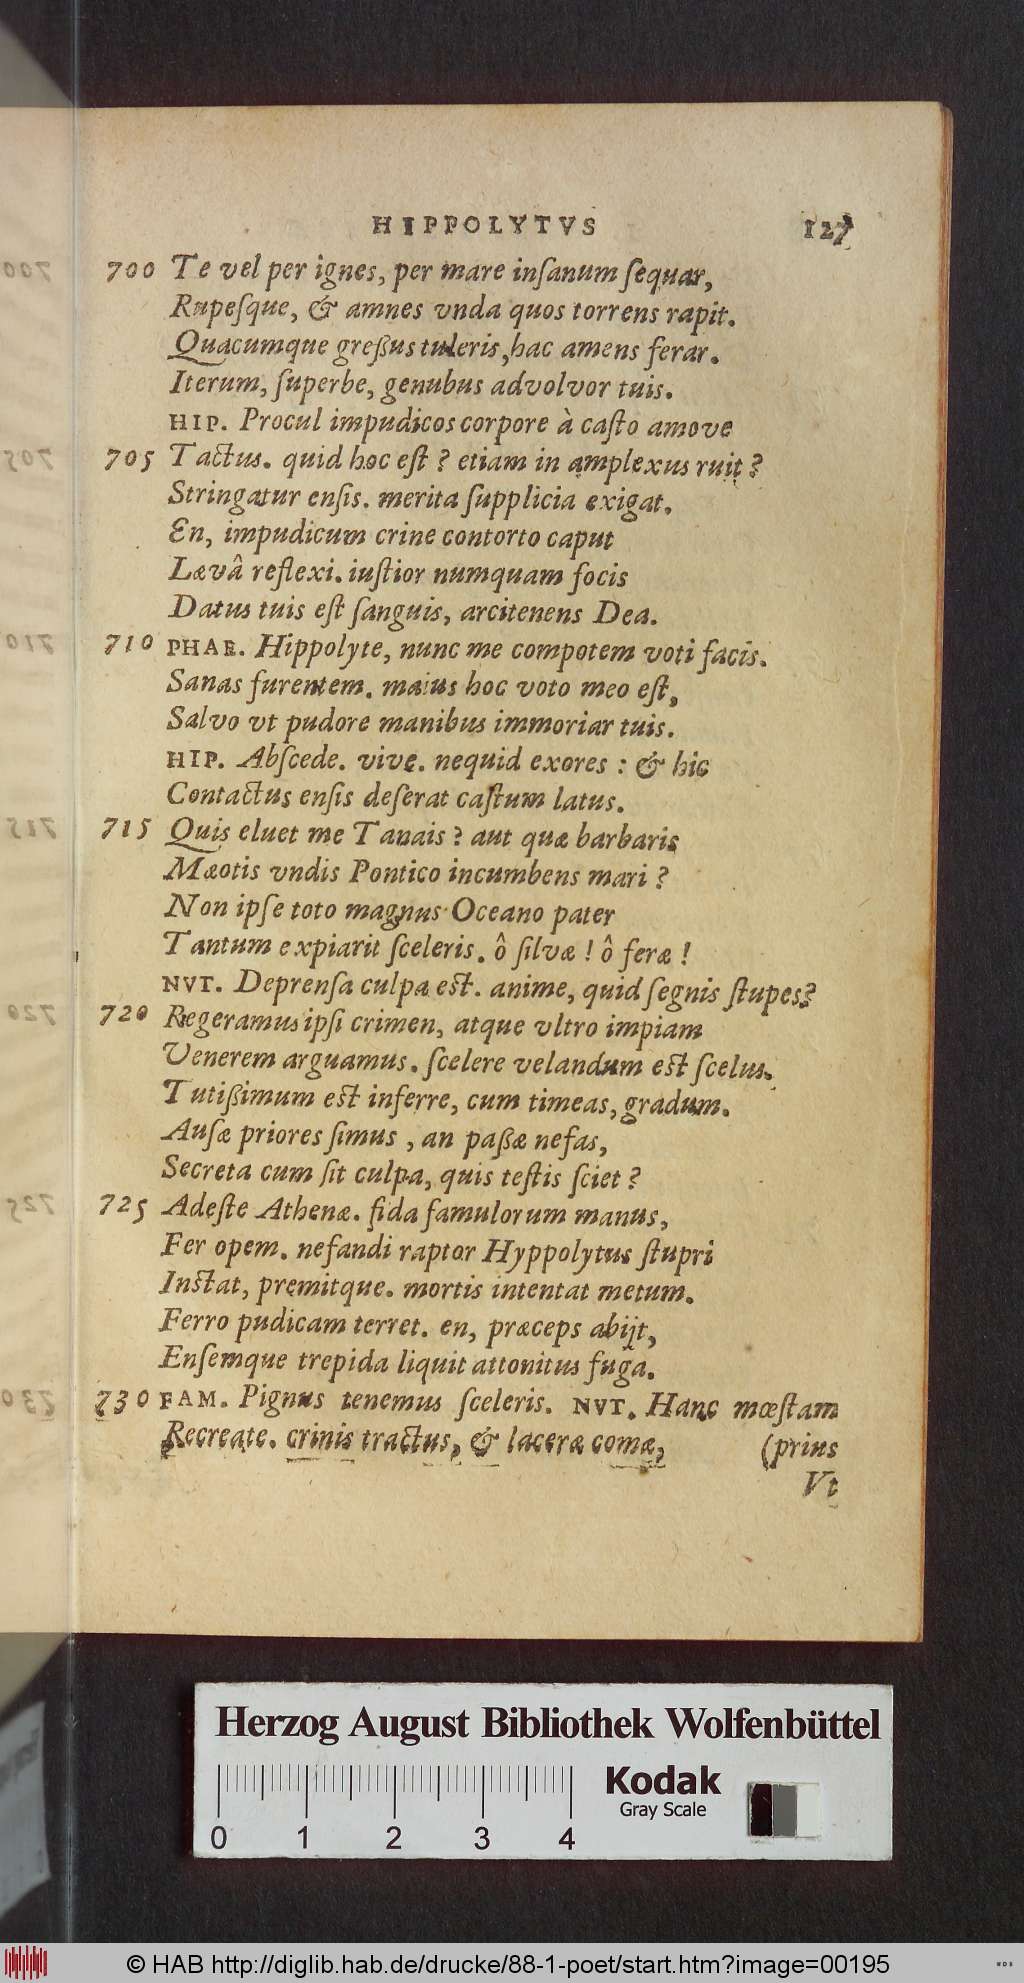 HIPPOLYTVS 127
700 Te vel per ignes, per mare inſanum ſequar,
Rupeſque, & amnes vnda quos torrens rapit.
Quacumque greßus tuleris, hac amens ferar.
Iterum, ſuperbe, genubus advolvor tuis.
HIP. Procul impudicos corpore à caſto amove
705 Tactus. quid hoc eſt ? etiam in amplexus ruit ?
Stringatur enſis. merita ſupplicia exigat.
En, impudicum crine contorto caput
Lævâ reflexi. iuſtior numquam focis
Datus tuis eſt ſanguis, arcitenens Dea.
710 PHAE. Hippolyte, nunc me compotem voti facis.
Sanas furentem. maius hoc voto meo eſt,
Salvo vt pudore manibus immoriar tuis.
HIP. Abſcede. vive. nequid exores : & hic
Contactus enſis deſerat caſtum latus.
715 Quis eluet me Tanais ? aut quæ barbaris
Mæotis vndis Pontico incumbens mari ?
Non ipſe toto magnus Oceano pater
Tantum expiarit ſceleris. ô ſilvæ ! ô feræ !
NVT. Deprenſa culpa est. anime, quid ſegnis ſtupes?
720 Regeramus ipſi crimen, atque vltro impiam
Venerem arguamus. ſcelere velandum est ſcelus.
Tutißimum est inferre, cum timeas, gradum.
Auſæ priores ſimus , an paßæ nefas,
Secreta cum ſit culpa, quis teſtis ſciet ?
725 Adeſte Athenæ. fida famulorum manus,
Fer opem. nefandi raptor Hyppolytus ſtupri
Instat, premitque. mortis intentat metum.
Ferro pudicam terret. en, præceps abijt,
Enſemque trepida liquit attonitus fuga.
730 FAM. Pignus tenemus ſceleris. NVT. Hanc mœſtam
Recreate. crinis tractus, & laceræ comæ, (prius
Vt
700
705
710
715
720
725
730
Herzog August Bibliothek Wolfenbüttel
Kodak
Gray Scale
0 1 2 3 4
© HAB http://diglib.hab.de/drucke/88-1-poet/start.htm?image=00195